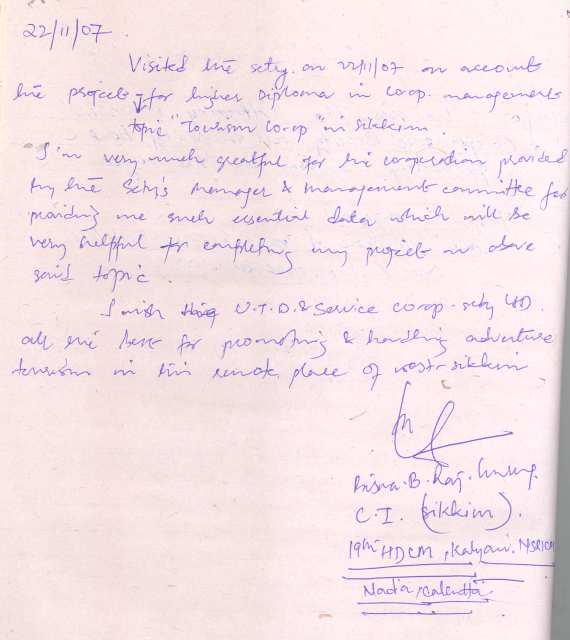 22/11/07.
Visited the scty. on 22/11/07 on account
the project for higher Diploma in Co.op. management
topic "Tourism Co-op" in sikkim.
I'm very much greatful for the co-operation provided
by the Scty's Manager & Management committee for
providing me such essential data which will be
very helpful for completing my project on above
said topic.
I wish U.T.D. & Service co-op. scty. LTD.
all the best for promoting & handling adventure
tourism in this remote place of west-sikkim
B. Raj.
C.I. (Sikkim).
19th HDCM, Kalyani.
Nadia, Calcutta.